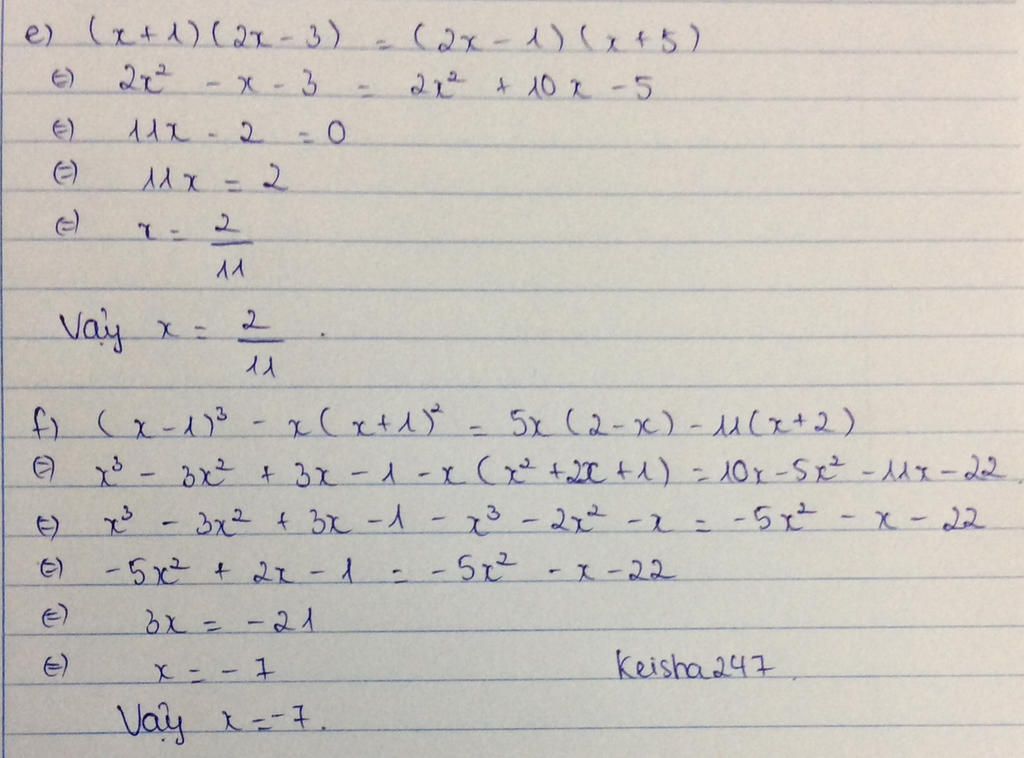 e) (x+1)(2x-3) = (2x-1)(x+5)
⇔ 2x² - x - 3 = 2x² + 10x - 5
⇔ 11x - 2 = 0
⇔ 11x = 2
⇔ x = 2/11
Vậy x = 2/11.
f) (x-1)³ - x(x+1)² = 5x(2-x) - 11(x+2)
⇔ x³ - 3x² + 3x - 1 - x(x² + 2x + 1) = 10x - 5x² - 11x - 22.
⇔ x³ - 3x² + 3x - 1 - x³ - 2x² - x = -5x² - x - 22
⇔ -5x² + 2x - 1 = -5x² - x - 22
⇔ 3x = -21
⇔ x = -7
Keisha247.
Vậy x = -7.